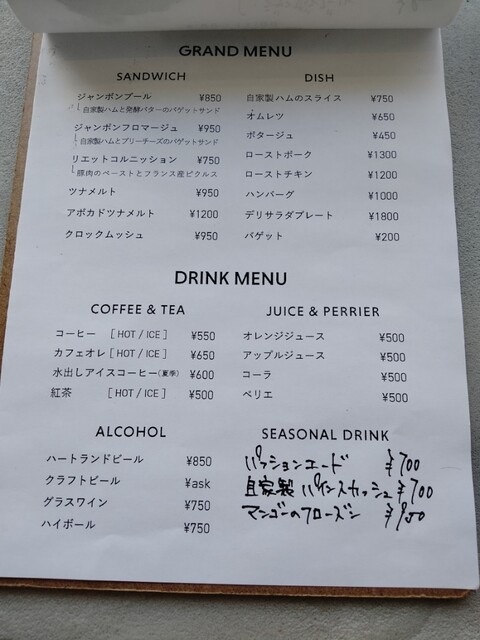 GRAND MENU
SANDWICH
ジャンボンブール ¥850
自家製ハムと発酵バターのバゲットサンド
ジャンボンフロマージュ ¥950
自家製ハムとブリーチーズのバゲットサンド
リエットコルニッション ¥750
豚肉のペーストとフランス産ピクルス
ツナメルト ¥950
アボカドツナメルト ¥1200
クロックムッシュ ¥950
DISH
自家製ハムのスライス ¥750
オムレツ ¥650
ポタージュ ¥450
ローストポーク ¥1300
ローストチキン ¥1200
ハンバーグ ¥1000
デリサラダプレート ¥1800
バゲット ¥200
DRINK MENU
COFFEE & TEA
コーヒー [ HOT / ICE ] ¥550
カフェオレ [ HOT / ICE ] ¥650
水出しアイスコーヒー(夏季) ¥600
紅茶 [ HOT / ICE ] ¥500
JUICE & PERRIER
オレンジジュース ¥500
アップルジュース ¥500
コーラ ¥500
ペリエ ¥500
ALCOHOL
ハートランドビール ¥850
クラフトビール ¥ask
グラスワイン ¥750
ハイボール ¥750
SEASONAL DRINK
パッションエード ¥700
自家製 パインスカッシュ ¥700
マンゴーのフローズン ¥950